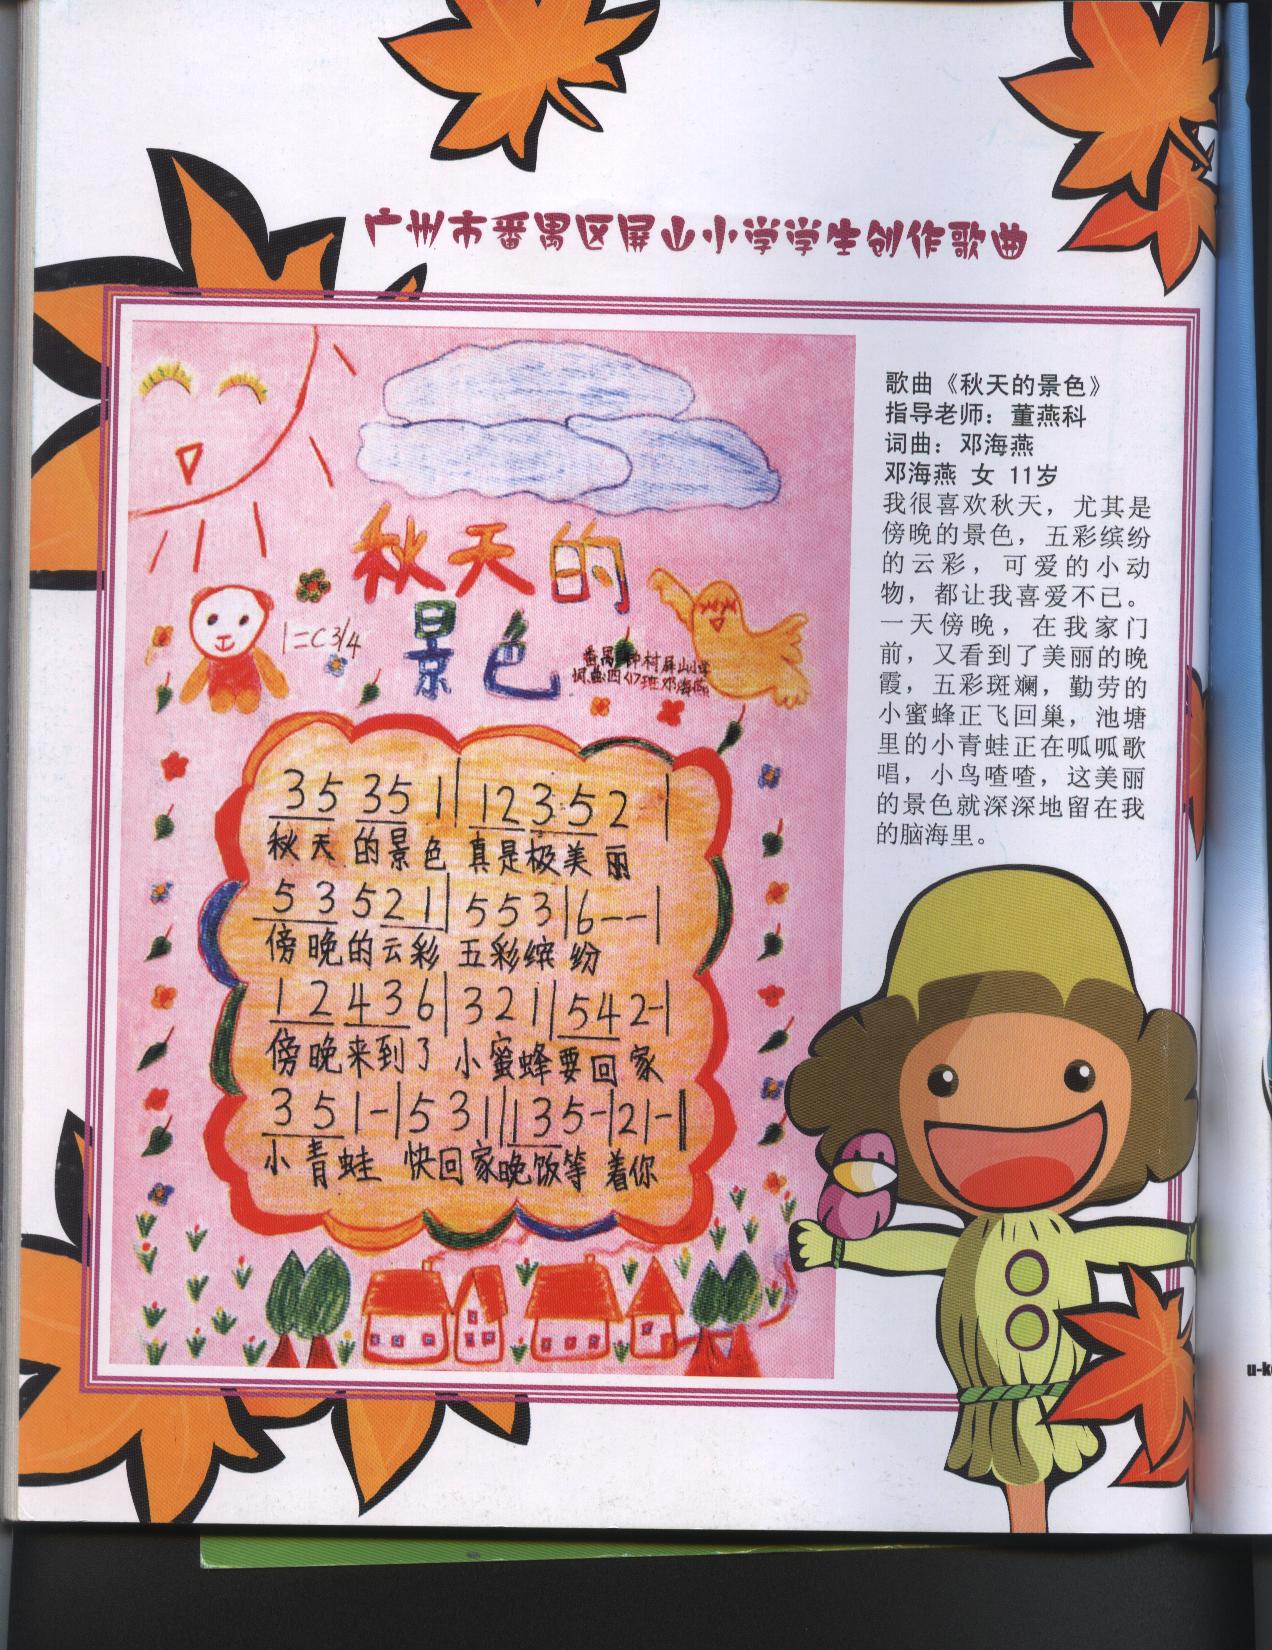 广州市番禺区屏山小学学生创作歌曲
歌曲《秋天的景色》
指导老师：董燕科
词曲：邓海燕
邓海燕 女 11岁
我很喜欢秋天，尤其是
傍晚的景色，五彩缤纷
的云彩，可爱的小动
物，都让我喜爱不已。
一天傍晚，在我家门
前，又看到了美丽的晚
霞，五彩斑斓，勤劳的
小蜜蜂正飞回巢，池塘
里的小青蛙正在呱呱歌
唱，小鸟喳喳，这美丽
的景色就深深地留在我
的脑海里。
秋天的
景色
1=C3/4
番禺 钟村屏山小学
词曲:四(1)班邓海燕
35 35 1| 123·52 |
秋天的景色 真是极美丽
53521|553|6--|
傍晚的云彩 五彩缤纷
12436|321|542-|
傍晚来到了 小蜜蜂要回家
351-|531|135-|21-||
小青蛙 快回家晚饭等着你